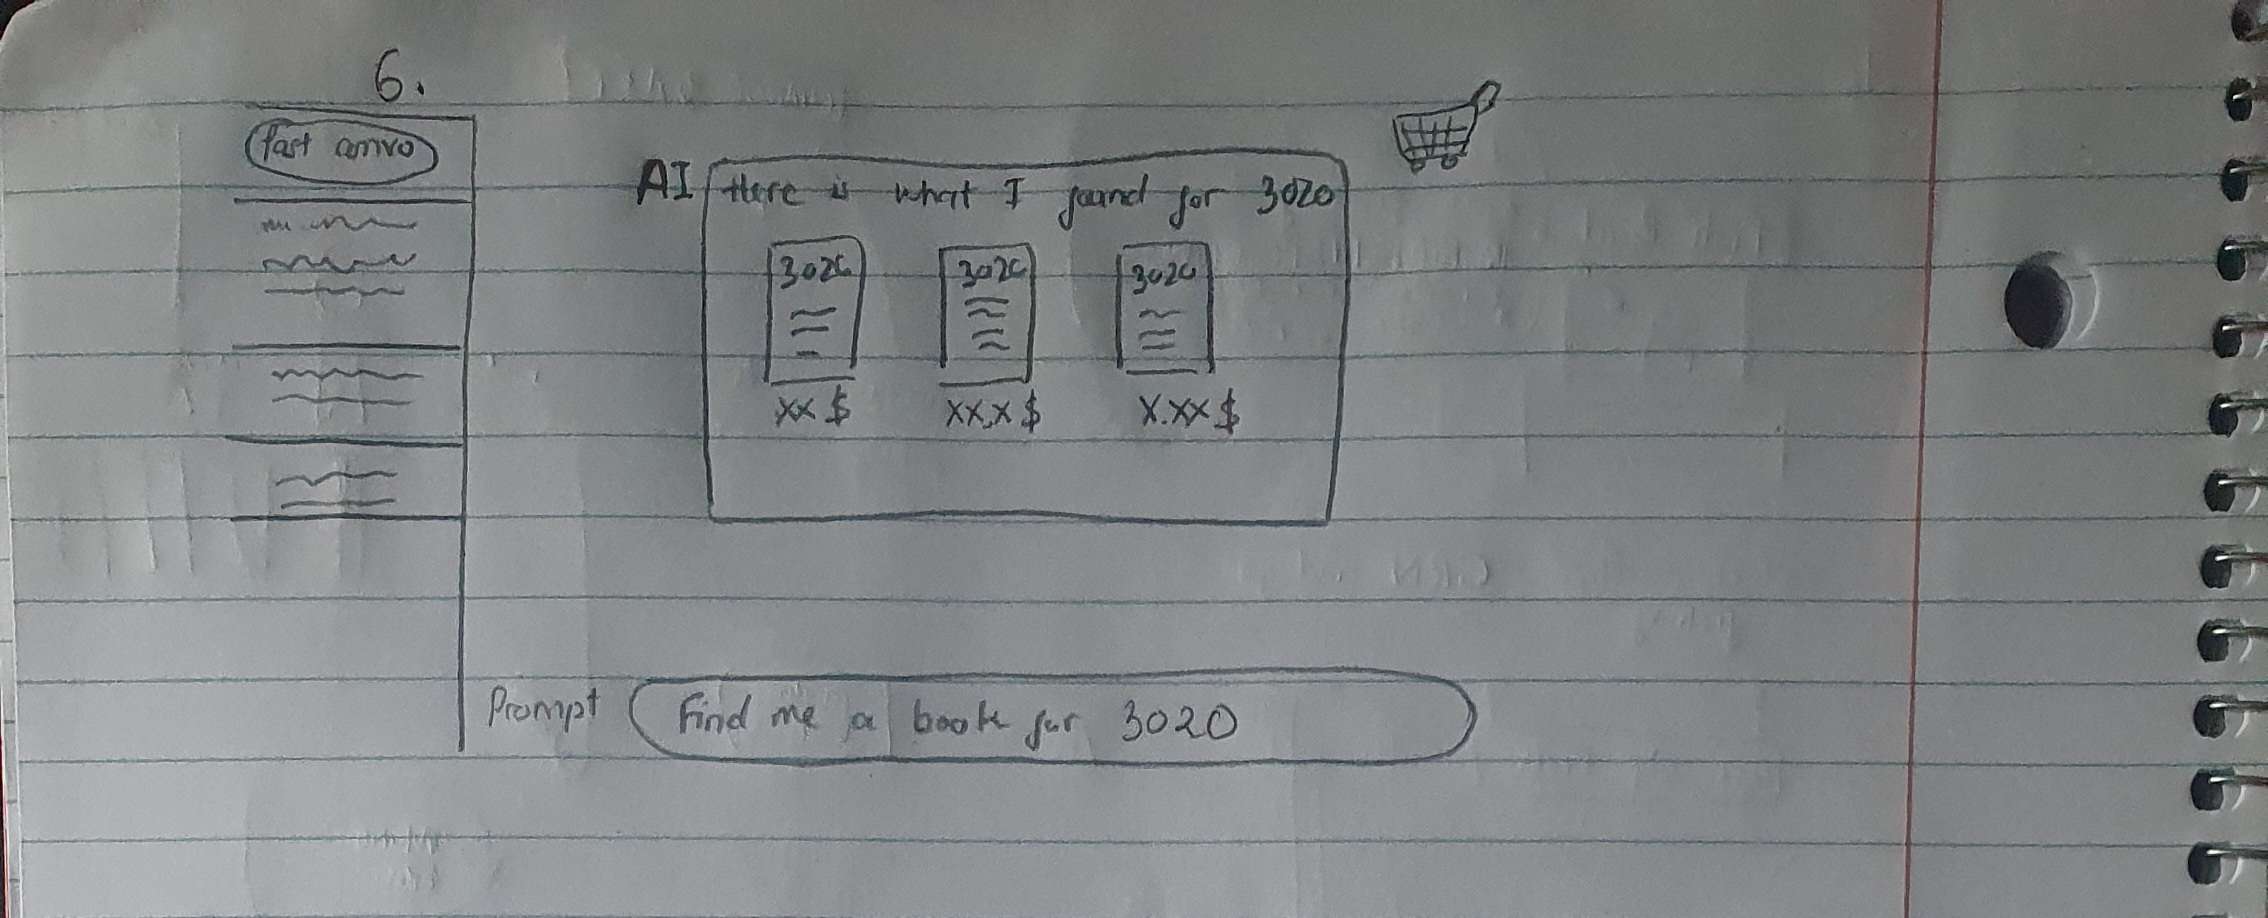 6.
Past convo
AI Here is what I found for 3020
3020 3020 3020
XX $ XX.X $ X.XX $
Prompt Find me a book for 3020